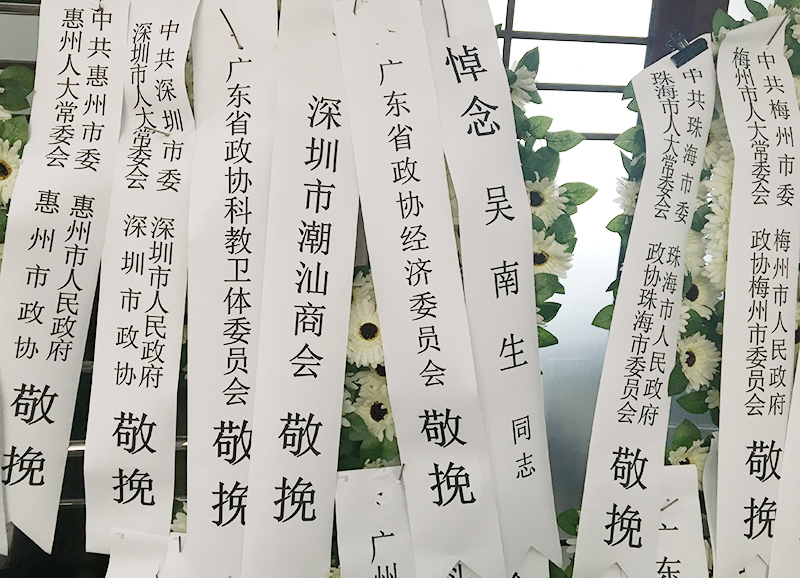 中共惠州市委
惠州人大常委会
惠州市人民政府
惠州市政协
敬挽
中共深圳市委
深圳市人大常委会
深圳市人民政府
深圳市政协
敬挽
广东省政协科教卫体委员会 敬挽
深圳市潮汕商会 敬挽
广州
广东省政协经济委员会 敬挽
悼念 吴南生 同志
中共珠海市委
珠海市人大常委会
珠海市人民政府
政协珠海市委员会
敬挽
广东
中共梅州市委
梅州市人大常委会
梅州市人民政府
政协梅州市委员会
敬挽